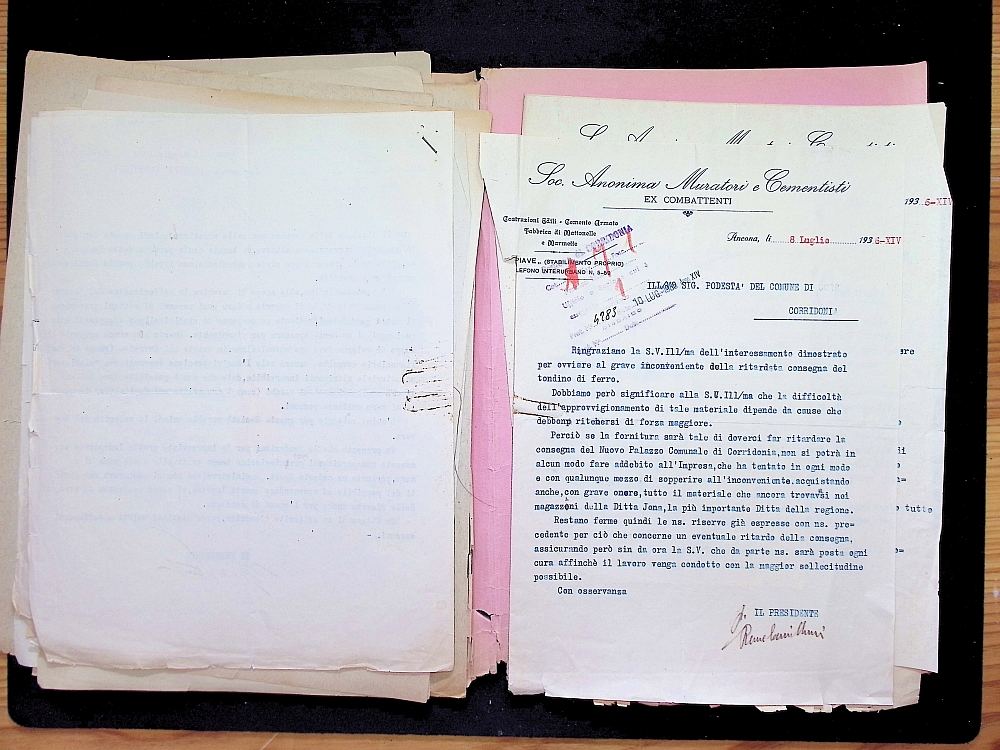 Soc. Anonima Muratori e Cementisti
EX COMBATTENTI
Costruzioni Edili - Cemento Armato
Fabbrica di Mattonelle
e Marmette
PIAVE (STABILIMENTO PROPRIO)
LEFONO INTERURBANO N. 5-59
193 6-XIV
Ancona, lì 8 Luglio 1936-XIV
CORRIDONIA
4285
10 LUG
XIV
SIG. PODESTA' DEL COMUNE DI
CORRIDONIA
Ringraziamo la S.V.Ill/ma dell'interessamento dimostrato
per ovviare al grave inconveniente della ritardata consegna del
tondino di ferro.
Dobbiamo però significare alla S.V.Ill/ma che la difficoltà
dell'approvvigionamento di tale materiale dipende da cause che
debbono ritenersi di forza maggiore.
Perciò se la fornitura sarà tale di doverci far ritardare la
consegna del Nuovo Palazzo Comunale di Corridonia,non si potrà in
alcun modo fare addebito all'Impresa,che ha tentato in ogni modo
e con qualunque mezzo di sopperire all'inconveniente.acquistando
anche,con grave onere,tutto il materiale che ancora trovavasi nei
magazzeni della Ditta Jona,la più importante Ditta della regione.
Restano ferme quindi le ns. riserve già espresse con ns. pre=
cedente per ciò che concerne un eventuale ritardo della consegna,
assicurando però sin da ora la S.V. che da parte ns. sarà posta ogni
cura affinchè il lavoro venga condotto con la maggior sollecitudine
possibile.
Con osservanza
IL PRESIDENTE
are
di
tutto